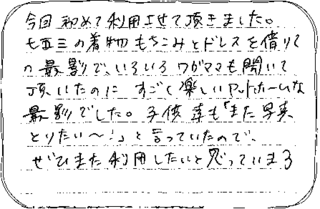 今回 初めて利用させて頂きました。
七五三の着物もちこみとドレスを借りて
の撮影で、いろいろワガママも聞いて
頂いたのに すごく楽しいアットホームな
撮影でした。子供達も「また写真
とりたい〜!」と言っていたので、
ぜひまた利用したいと思っています